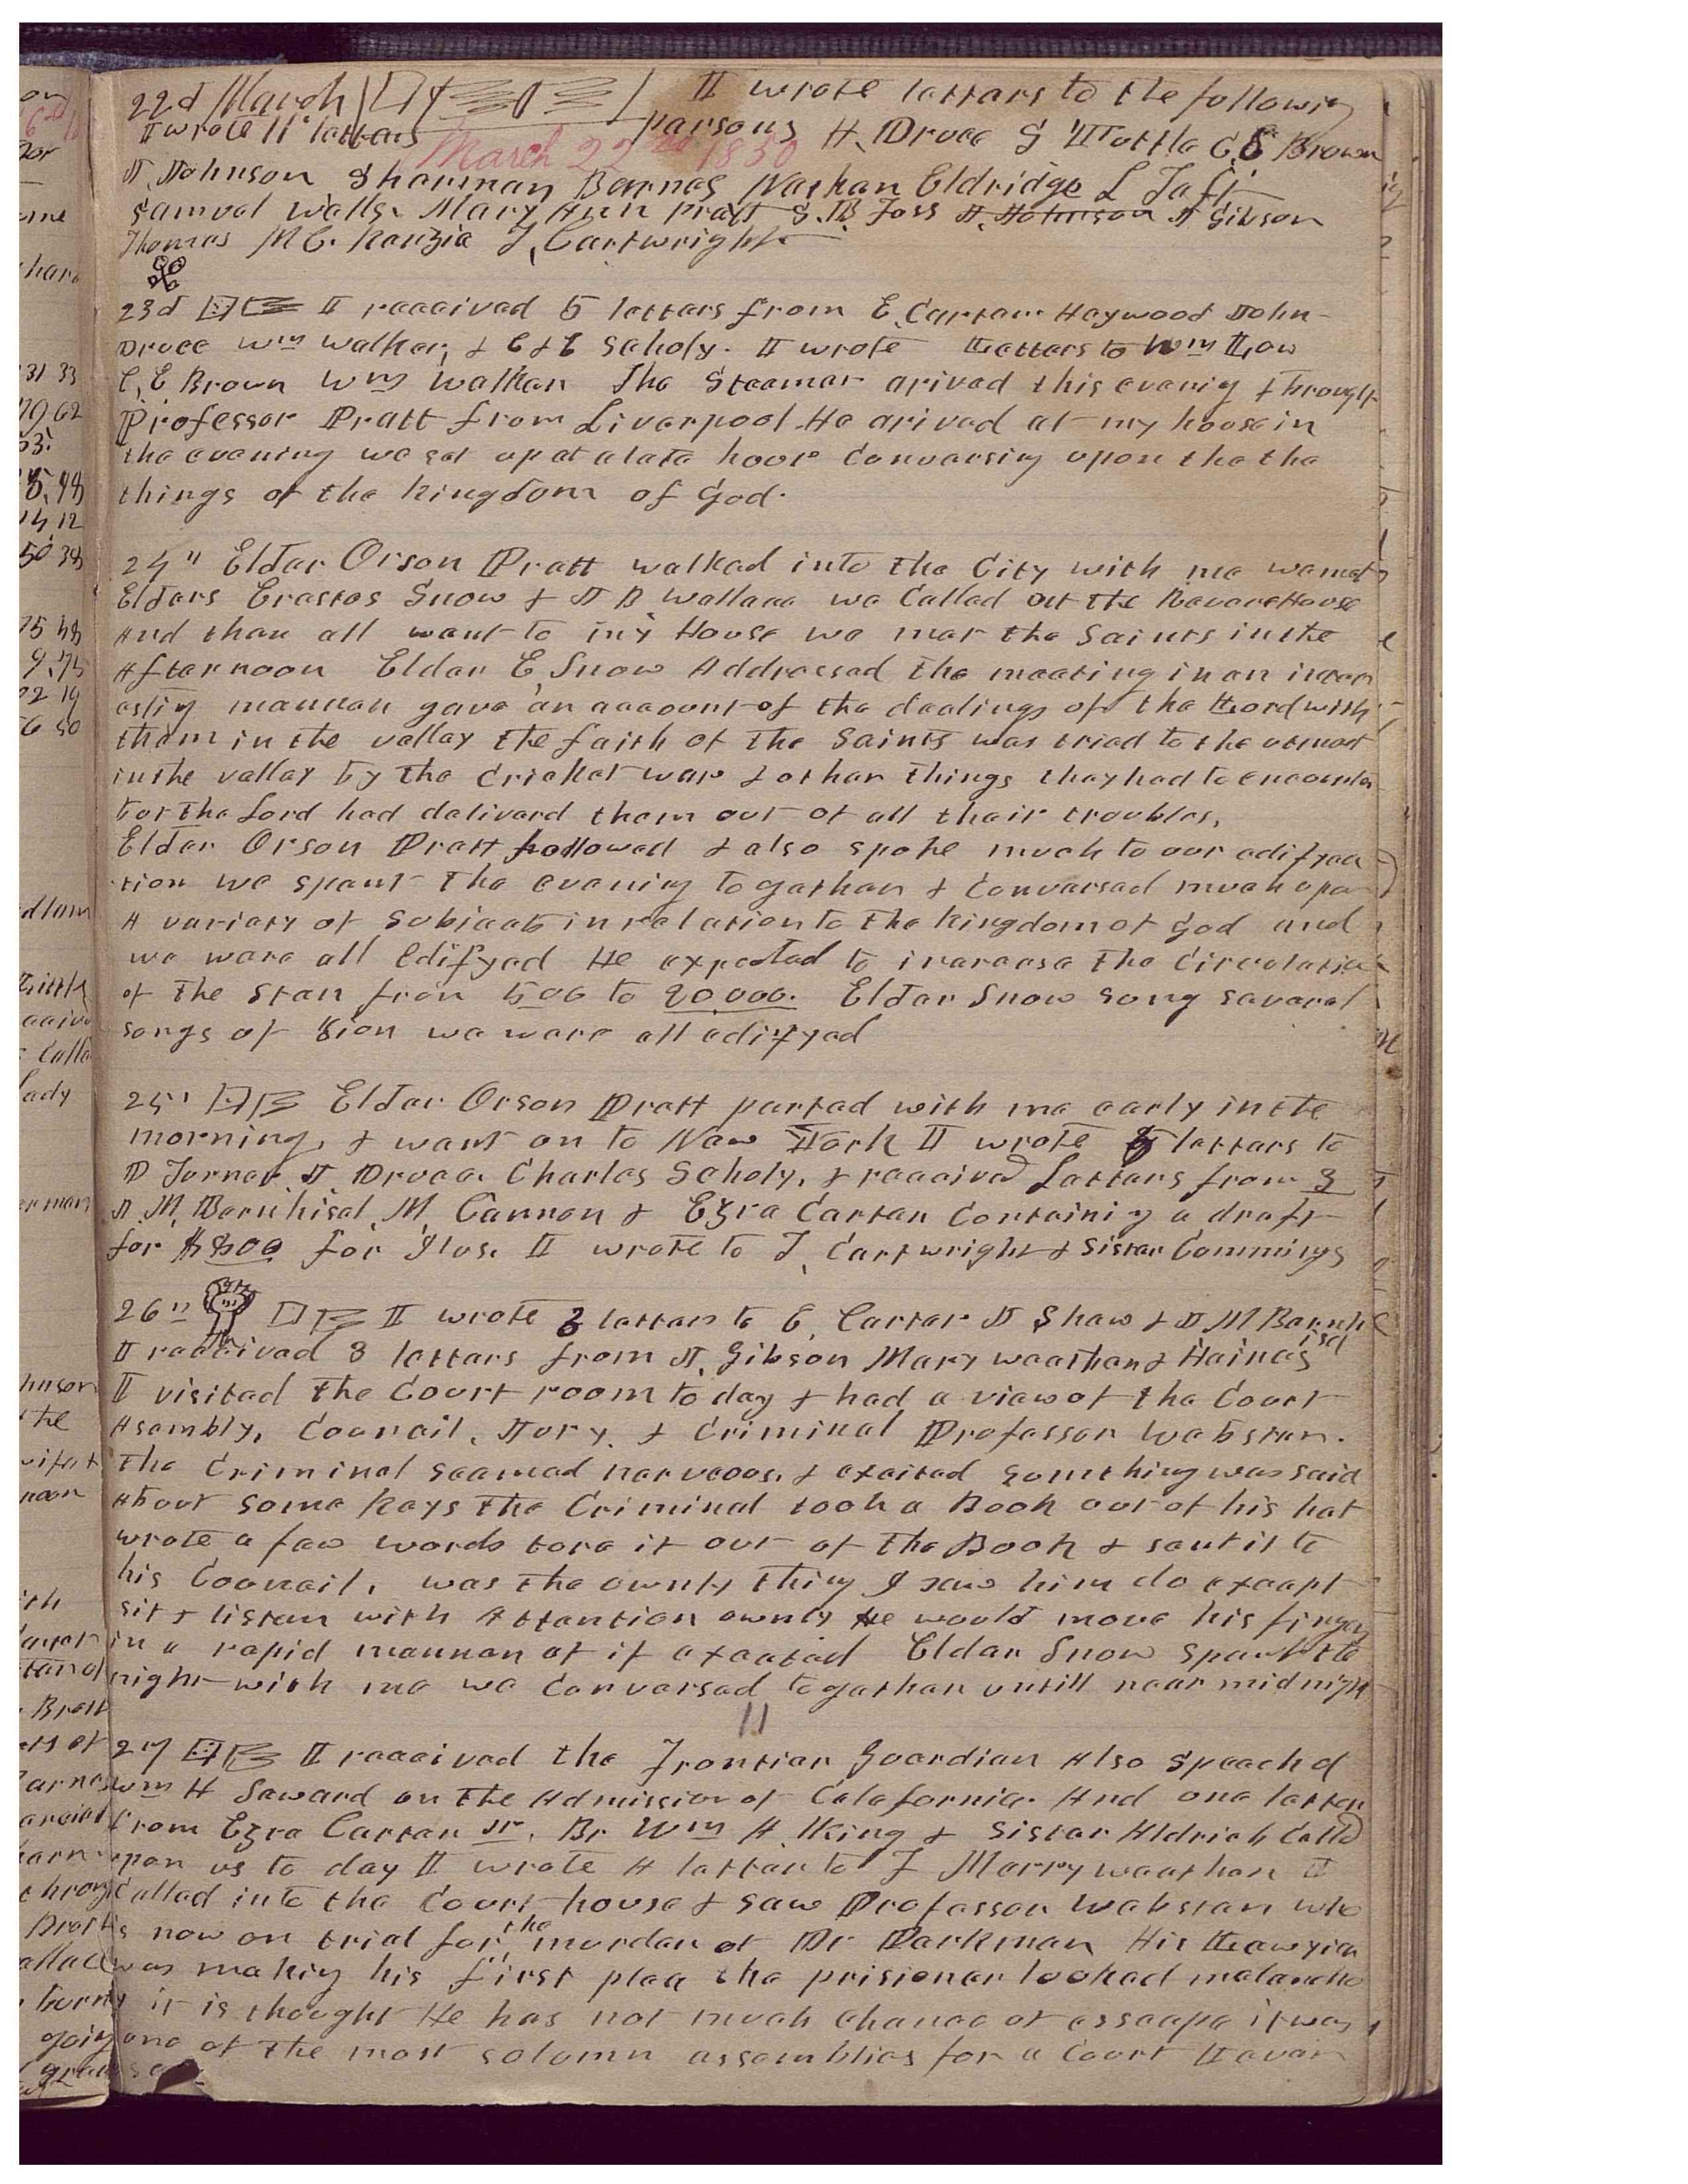 22d March I wrote letters to the following
I wrote 11 letters persons H. Druce G Tuttle C, E Brown
March 22nd 1850
J. Johnson Sherman Barnes Nathan Eldridge L Taft
Samuel Wells. Mary Ann Pratt S. B. Foss J. Johnson J Gibson
Thomas Mc. Kenzia J, Cartwright
23d I received 5 letters from E, Carter Haywood John
Druce Wm Walker, & C & E Scholy. I wrote Letters to Wm Low
C, E Brown Wm Walker The Steemer arived this evenig & brought
Professor Pratt from Liverpool He arived at my house in
the evening we set up at a late hour Conversing upon the the
things of the kingdom of God.
24" Elder Orson Pratt walked into the City with me we met
Elders Erastus Snow & J B Wallace we Called at the Revere House
And then all went to my House we met the Saints in the
Afternoon Elder E, Snow Addressed the meeting in an inter
estig manner gave an account of the dealings of the Lord with
them in the valley the faith of the Saints was tried to the utmost
in the valley by the Cricket war & other things they had to encounter
but the Lord had deliverd them out of all their troubles,
Elder Orson Pratt followed & also spoke much to our edifyca
tion we spent the evening together & Conversed much upon
A variety of subjects in relation to the kingdom of God and
we were all Edifyed He expected to increase the Circulation
of the Star from 500 to 20,000. Elder Snow sung several
songs of Zion we were all edifyed
25' Elder Orson Pratt parted with me early in the
morning, & went on to New York I wrote letters to
D Turner, J Druce. Charles Scholy, & received Letters from 3
J. M, Bernhisel, M, Cannon & Ezra Carter Containig a draft
for for Ilus. I wrote to J, Cartwright & Sister Commings
26" I wrote 3 letters to E, Carter J Shaw & J M Barnh
isel
I received 3 letters from J, Gibson Mary weather & Haines
I visited the Court room to day & had a view of the Court
Asembly, Council, Jury, & Criminal Professor Webster.
The Criminal seemed nerveous, & excited something was said
About some keys the Criminal took a Book out of his hat
wrote a few words tore it out of the Book & sent it to
his Councail, was the ownly thing I saw him do except
sit & listen with Attention ownly He would move his finger
in a rapid manner at if excetied Elder Snow spent the
night with me we Conversed together untill near midnight
27 I received the Frontier Guardian Also Speech of
Wm H Seward on the Admission of Calefornia. And one letter
from Ezra Carter Jr. Br Wm A. King & Sister Aldrich Called
upon us to day I wrote A letter to F Merryweather I
Called into the Court house & saw Professor Webster who
is now on trial for the murder of Dr Parkman His Lawyier
was makig his first plea the prisioner looked melancho
ly it is thought He has not much chance of esscape it was
one of the most solumn assemblies for a Court I ever